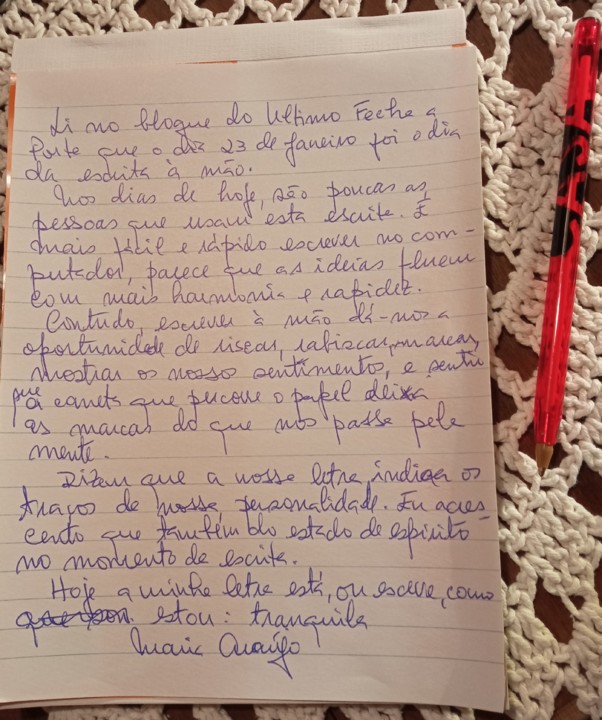 Li no blogue do Ultimo Feche a
Porte que o diz 23 de janeiro foi o dia
da escrita à mão.
Nos dias de hoje, são poucas as
pessoas que usam esta escrite. É
mais fácil e rápido escrever no com-
putador, parece que as ideias fluem
com mais harmonia e rapidez.
Contudo, escrever à mão dá-nos a
oportunidade de riscar, rabiscar, marcar,
mostrar os nosso sentimento, e sentir
que a caneta que percorre o papel deixa
as marcas do que nos passe pele
mente.
Dizem que a nosse letre indicar os
traços de nossa personalidade. Eu acres
cento que também do estado de espirito
no momento de escrita.
Hoje a minhe letre está, ou escreve, como
estou: tranquila
Maria Araújo